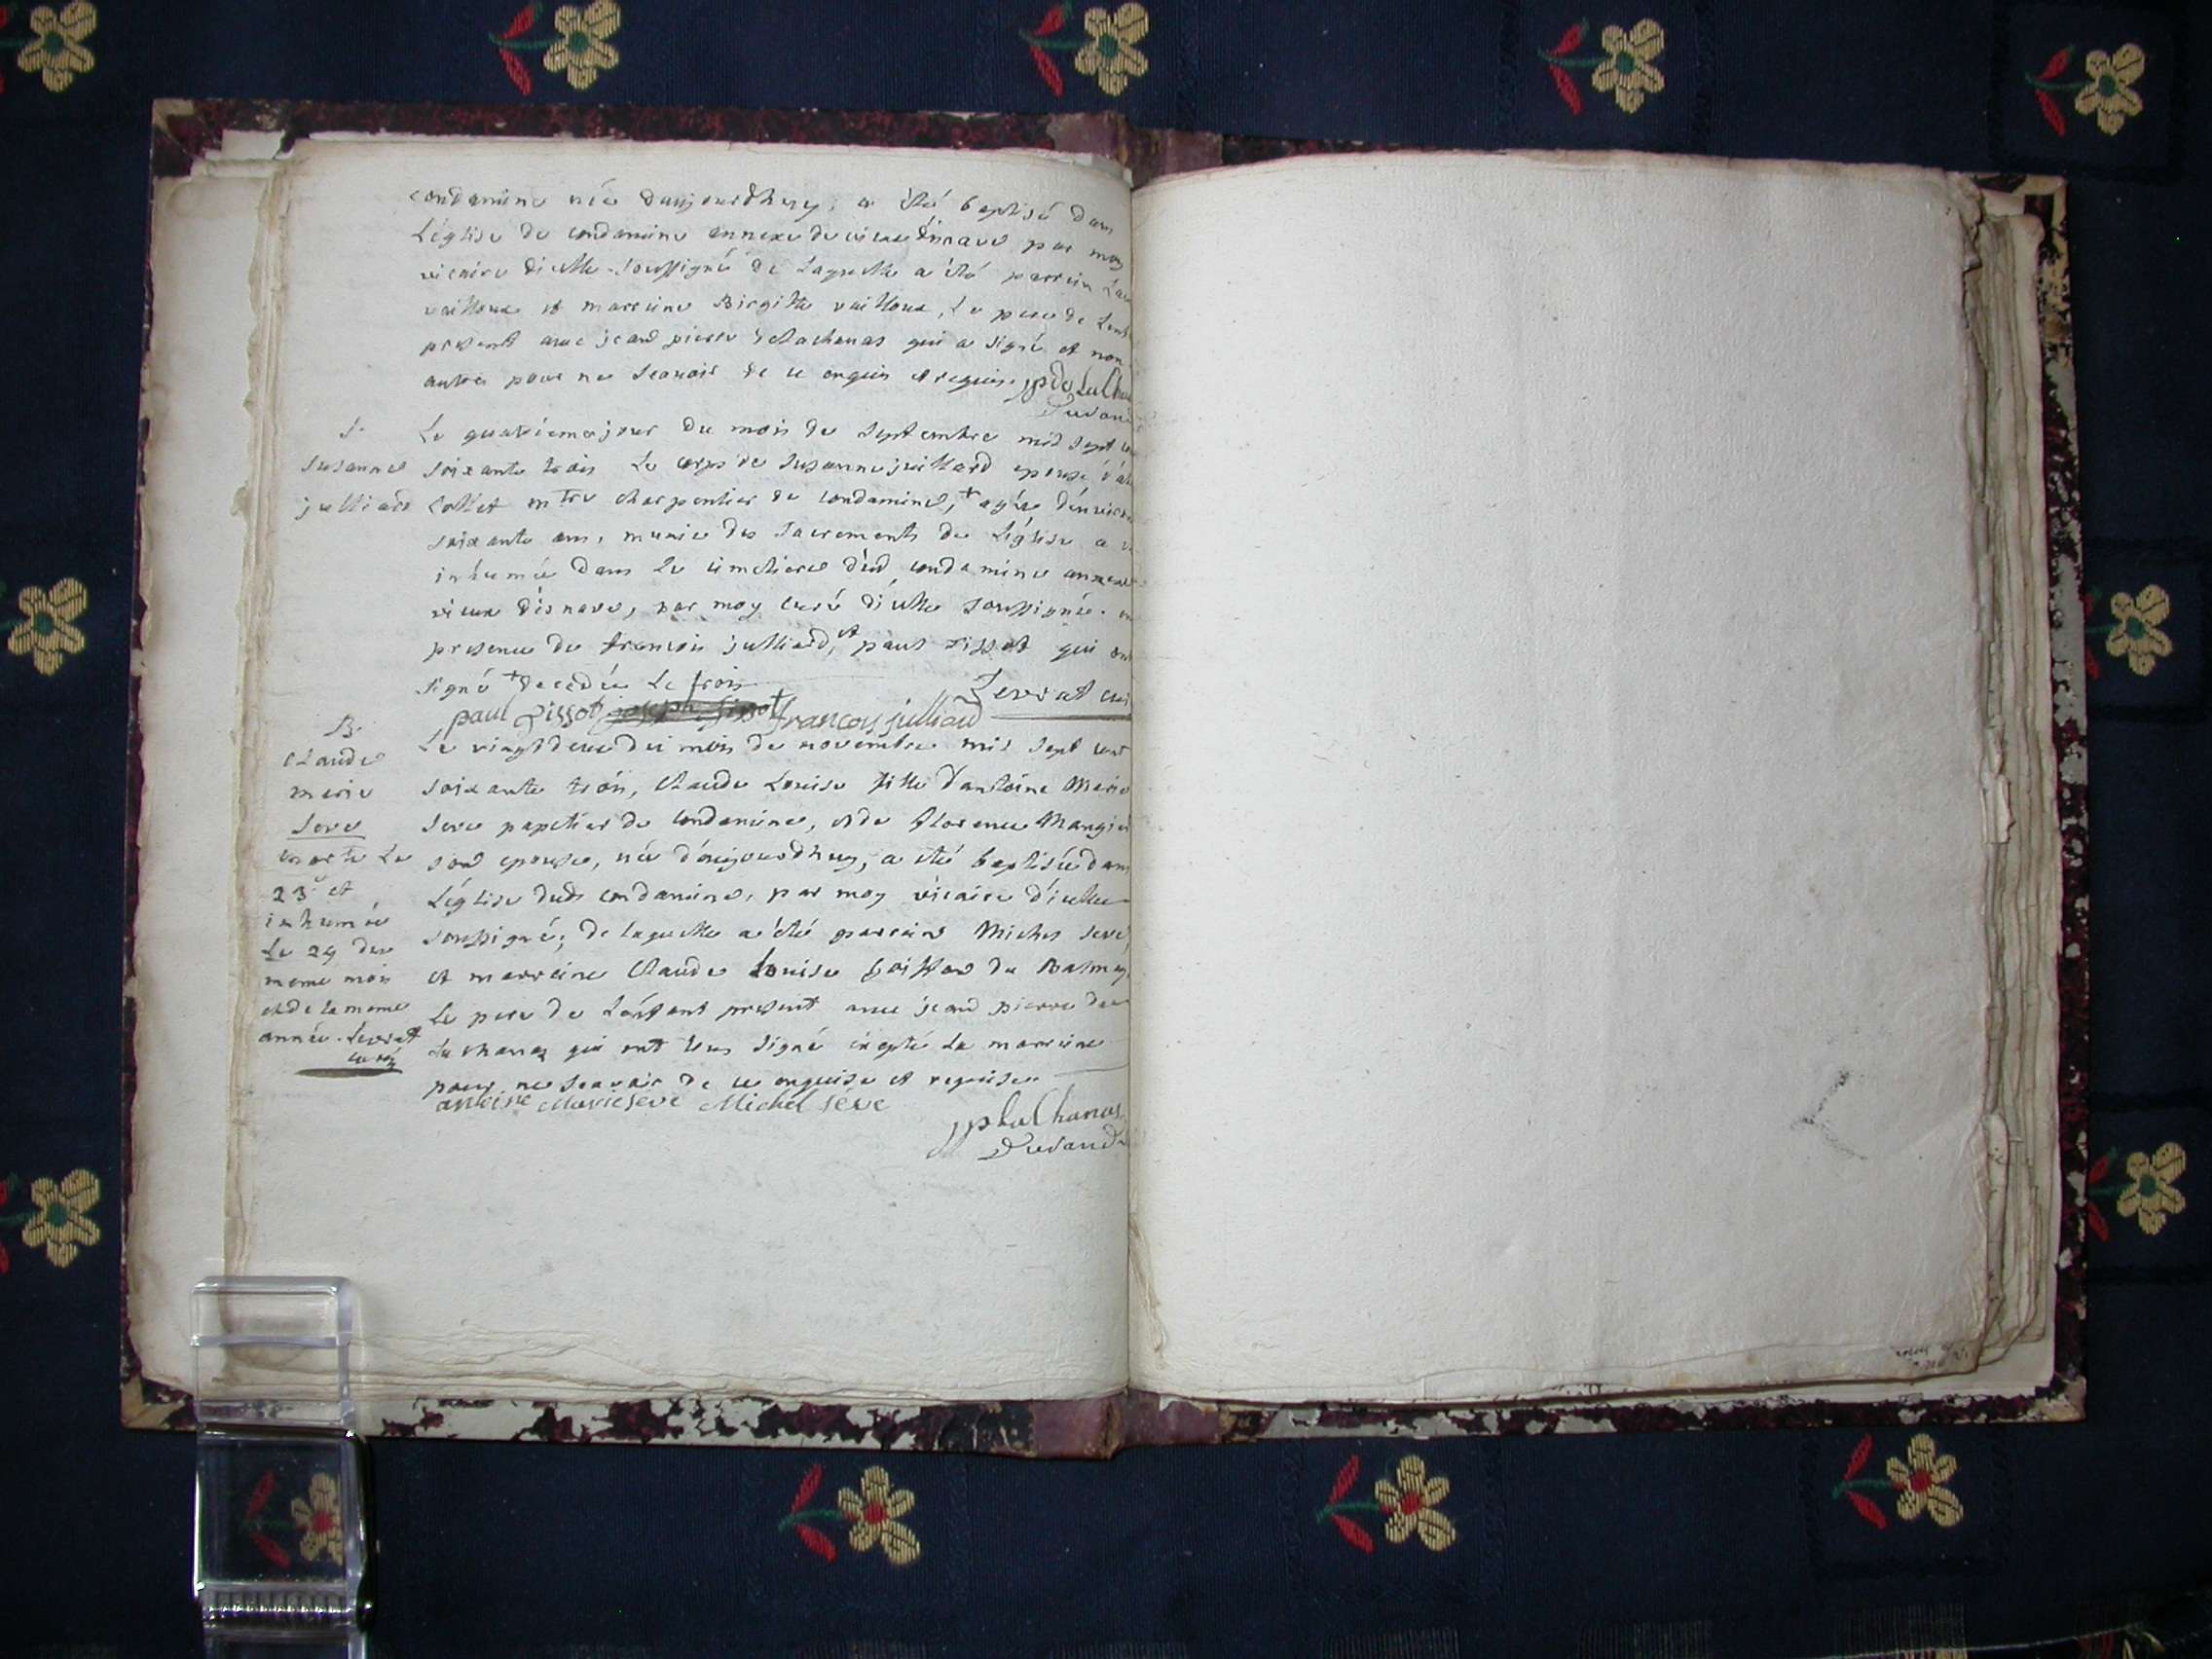 condamine née daujourdhuy, a été baptisé dans
Léglise de condamine annexe de vieux d'isnave par moy
vicaire dicelle soussigné de Laquelle a été parrein
vailloux et marreine Birgitte vailloux, Le pere de
present avec jean pierre delachanas qui a signé et non
autres pour ne scavoir de ce enquis et requis.
S.
Susanne
julliard
Le quatriemejour du mois de septembre mil sept
soixante trois Le corps de Susanne juillard epouse
Collet mtre charpentier de condamine, + agée d'environ
soixante ans, munie des sacrements de Léglise a
inhumée dans Le cimetiere dud condamine annexe
vieux d'isnave, par moy curé dicelle soussigné. en
presence de francois julliard, et paul sissot qui ont
signé + decedée Le trois
Levrat curé
paul Sissot joseph Sissot francois julliard
B.
Claude
merie
Seve
morte Le
23e et
inhumée
Le 24 du
meme mois
et de la meme
année. Levrat
curé
Le vingtdeux du mois de novembre mil sept cent
soixante trois, Claude Louise fille d'antoine Merie
Seve papetier de Condamine, et de florence Mangin
son epouse, née d'aujourdhuy, a été baptisée dans
Léglise dudt condamine, par moy vicaire d'icelle
soussigné; de laquelle a été parrein Michel Seve,
et marreine Claude Louise du Balmey
Le pere de L'enfant present avec jean pierre de
Lachanas qui ont tous signé excepté La marreine
pour ne scavoir de ce enquise et requise
antoine Marie Seve Michel Seve
jplachanas
Durand